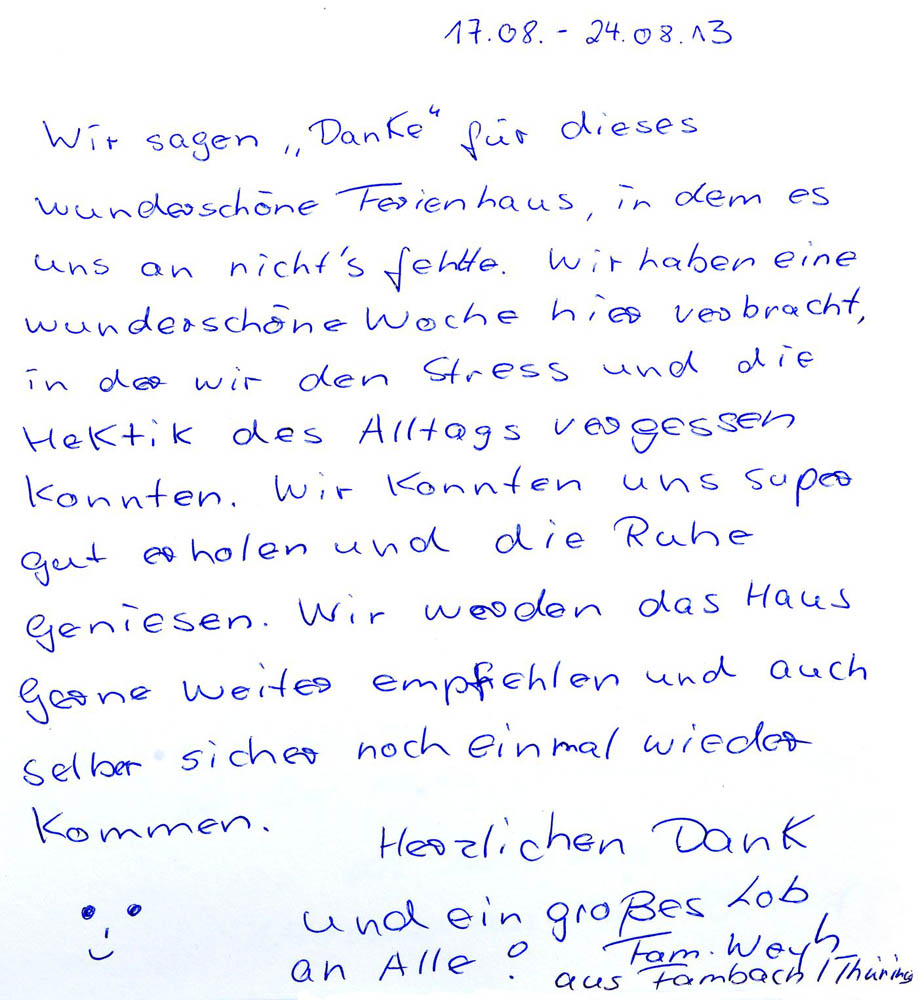 17.08. - 24.08.13
Wir sagen „Danke“ für dieses
wunderschöne Ferienhaus, in dem es
uns an nicht's fehlte. Wir haben eine
wunderschöne Woche hier verbracht,
in der wir den Stress und die
Hektik des Alltags vergessen
konnten. Wir konnten uns super
gut erholen und die Ruhe
geniesen. Wir werden das Haus
gerne weiter empfehlen und auch
selber sicher noch einmal wieder
kommen.
Herzlichen Dank
und ein großes Lob
an Alle!
Fam. Weyh
aus Tambach / Thüring